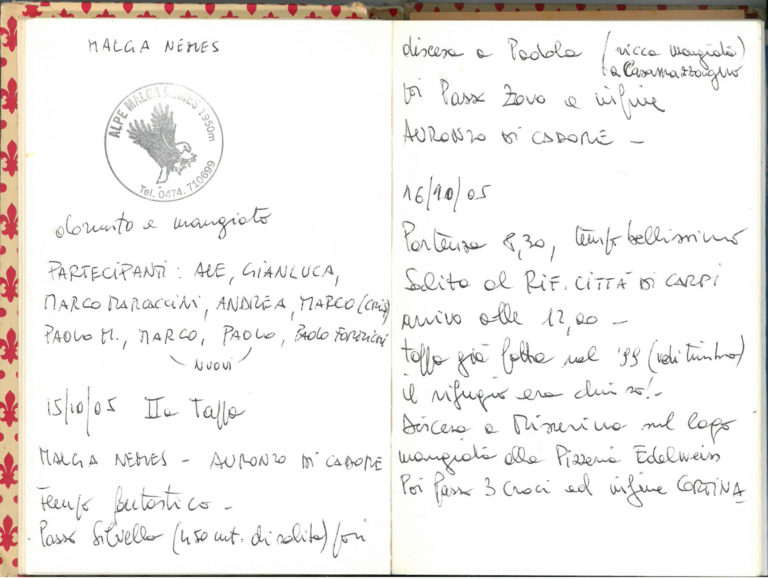 MALGA NEMES
ALPE MALGA NEMES 1950m
Tel. 0474.710699
dormito e mangiato
PARTECIPANTI: ALE, GIANLUCA,
MARCO MARACCINI, ANDREA, MARCO (CRIS)
PAOLO M., MARCO, PAOLO, PAOLO
NUOVI
15/10/05 IIa Tappa
MALGA NEMES - AURONZO DI CADORE
Tempo fantastico -
Passo Silvella (450 mt. di salita) poi
discesa a Padola (ricca mangiata)
a Casamazzagno
poi Passo Zovo e infine
AURONZO DI CADORE -
16/10/05
Partenza 8,30, tempo bellissimo
Salita al RIF. CITTÀ DI CARPI
arrivo alle 12,00 -
tappa già fatta nel '99 (vedi timbro)
il rifugio era chiuso! -
Discesa a Misurina sul lago
mangiata alla Pizzeria Edelweiss
Poi Passo 3 Croci ed infine CORTINA